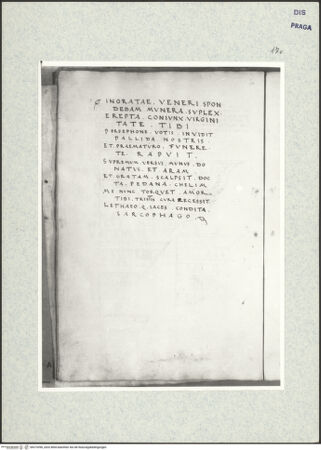 DIS
PRAGA
170
INGRATAE. VENERI SPON
DEDAM MUNERA. SVPLEX.
EREPTA. CONIVNX. VIRGINI
TATE. TIBI
PERSEPHONE. VOTIS. INVIDIT
PALLIDA. NOSTRIS
ET. PRAEMATVRO. FVNERE
TE. RAPVIT.
SVPREMVM. VERSVS. MVNVS. DO
NATVS. ET ARAM
ET. GRATAM. SCALPSIT. DOC
TA. PEDANA. CHELIM
ME NVNC. TORQVET. AMOR.
TIBI. TRISTIS. CVRA RECESSIT
LETHAEO. Q. IACES. CONDITA.
SARCOPHAGO.
A